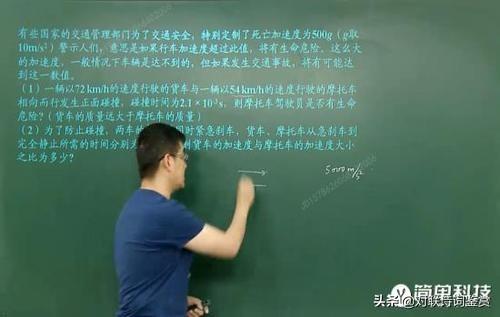 有些国家的交通管理部门为了交通安全，特别定制了死亡加速度为500g（g取
10m/s²）警示人们，意思是如果行车加速度超过此值，将有生命危险。这么大
的加速度，一般情况下车辆是达不到的，但如果发生交通事故，将有可能达
到这一数值。
（1）一辆以72 km/h的速度行驶的货车与一辆以54 km/h的速度行驶的摩托车
相向而行发生正面碰撞，碰撞时间为2.1×10⁻³s，则摩托车驾驶员是否有生命
危险？（货车的质量远大于摩托车的质量）
（2）为了防止碰撞，两车的 时紧急刹车，货车、摩托车从急刹车到
完全静止所需的时间分别为 货车的加速度与摩托车的加速度大小
之比为多少？
5000m/s²
简单科技
头条@对联诗词鉴赏